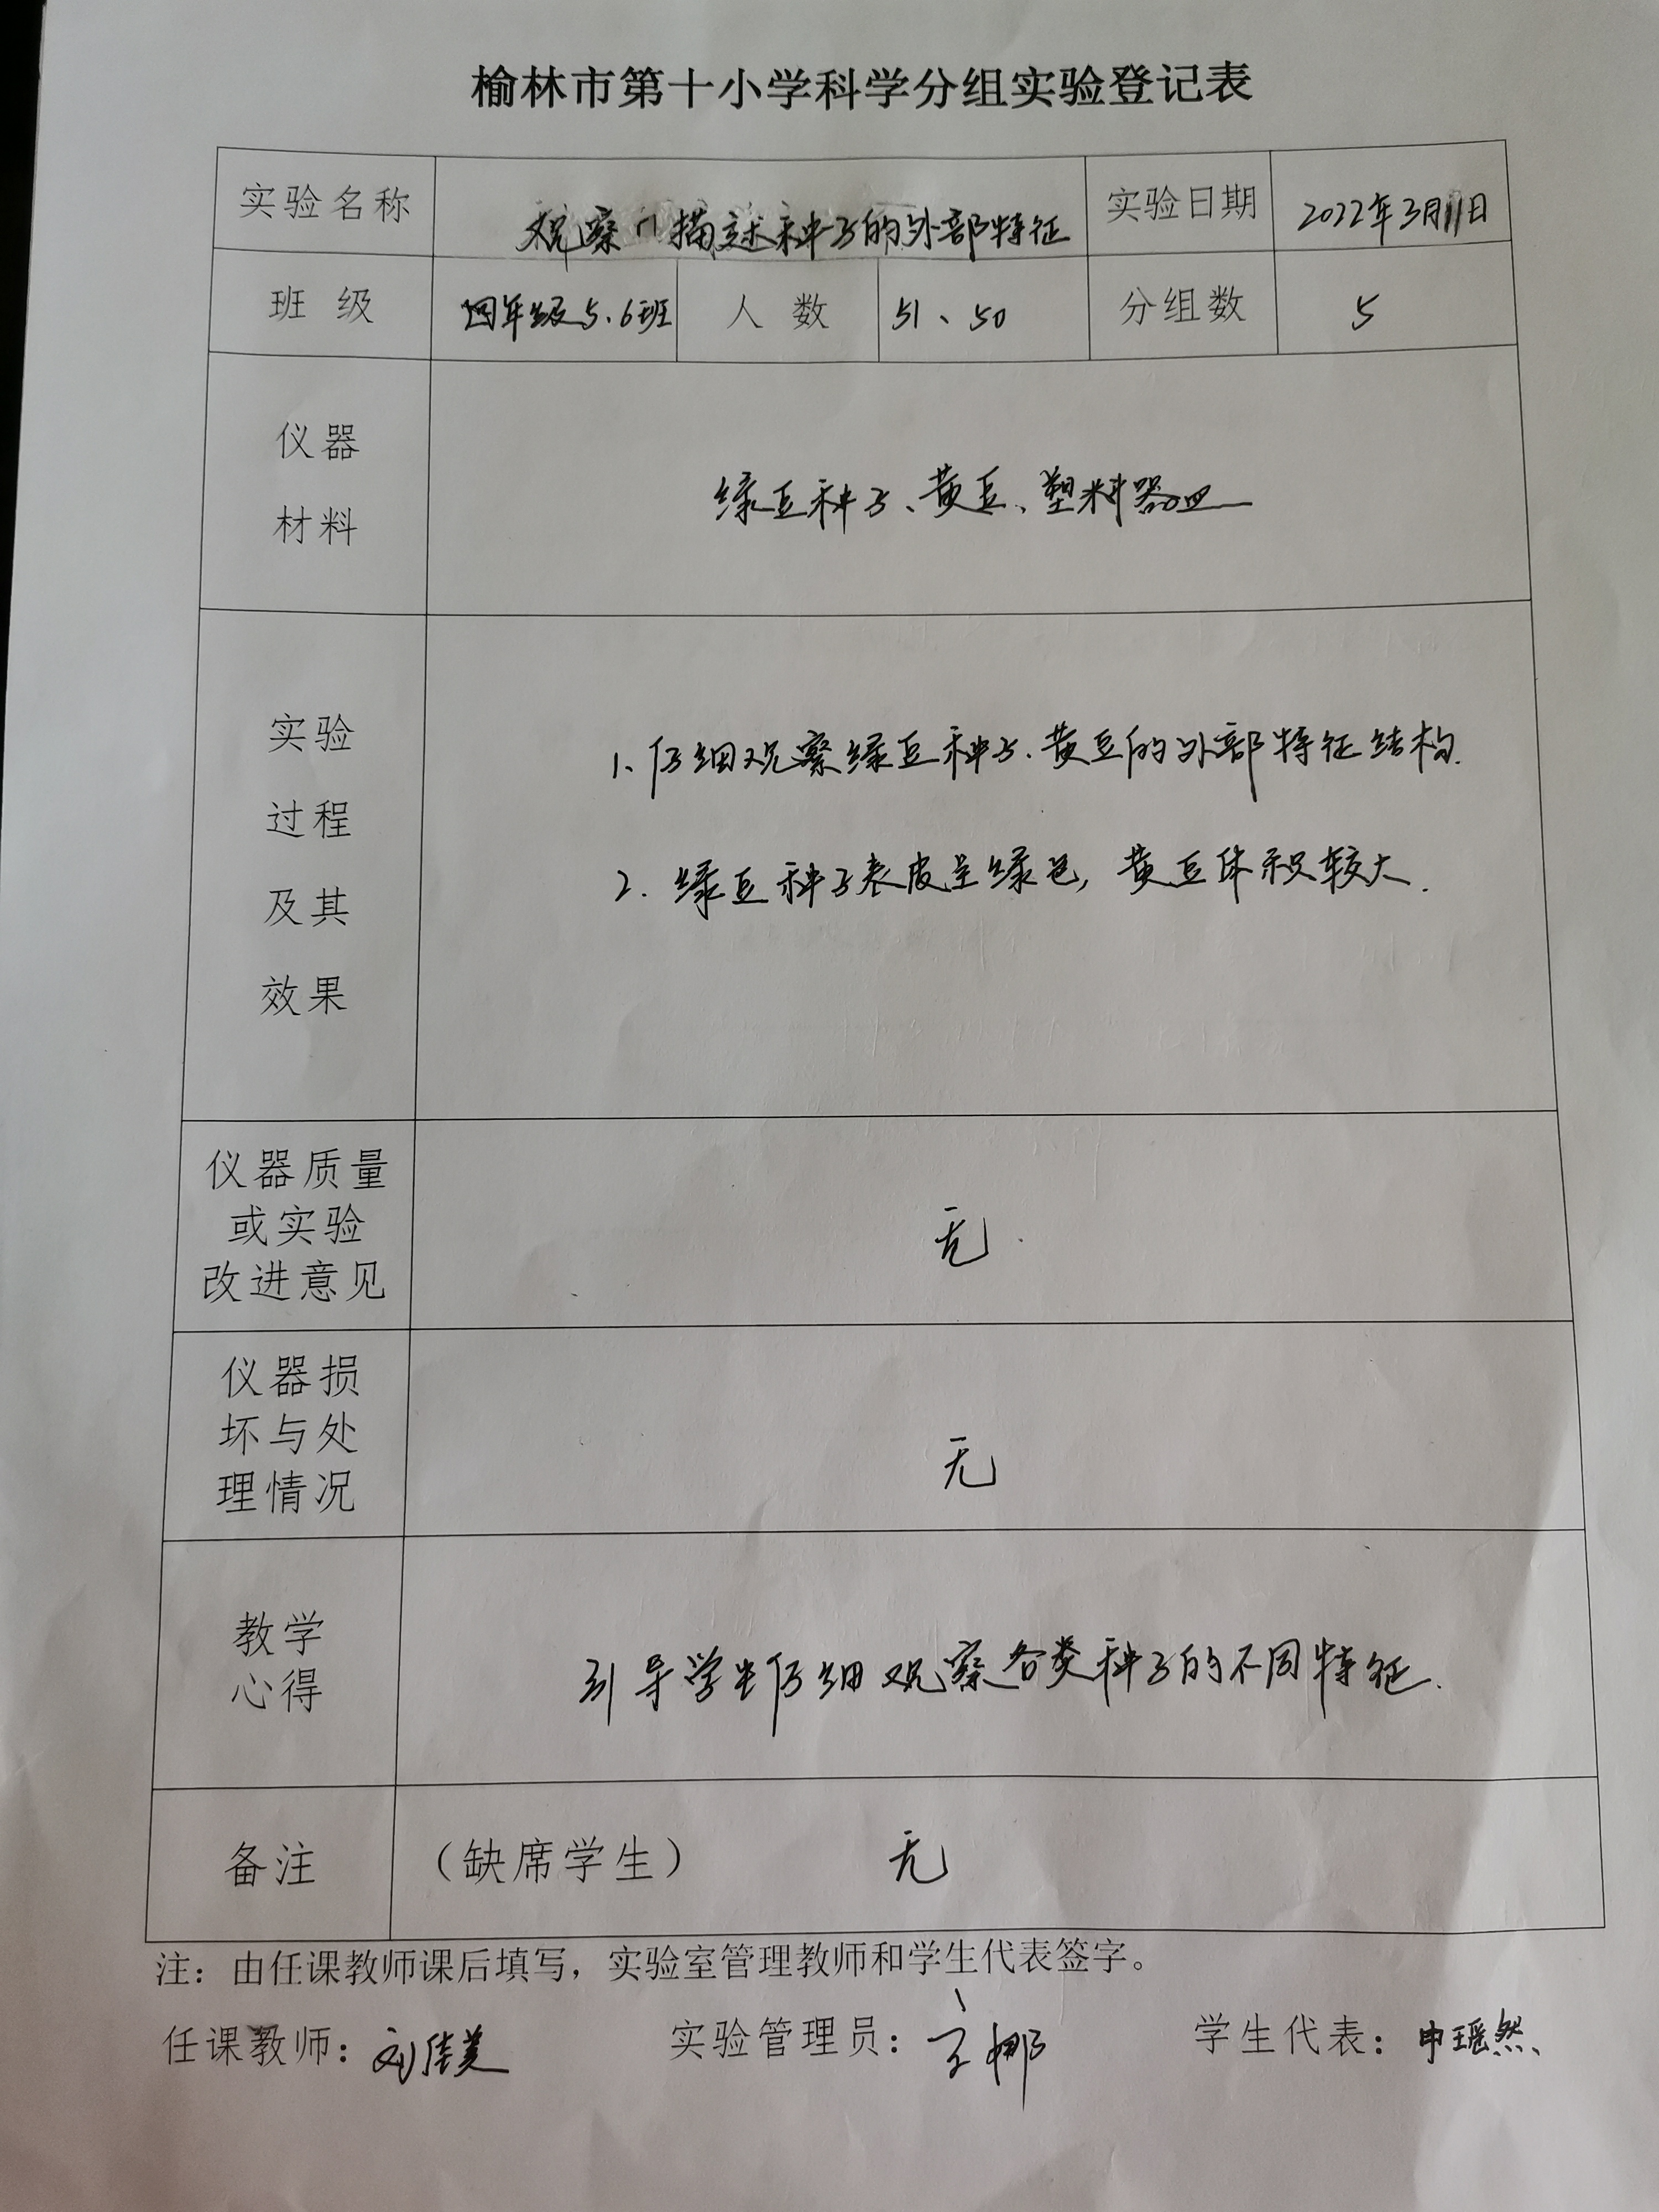 榆林市第十小学科学分组实验登记表
实验名称 观察、描述种子的外部特征 实验日期 2022年3月11日
班 级 四年级5、6班 人 数 51、50 分组数 5
仪器
材料
绿豆种子、黄豆、塑料器皿
实验
过程
及其
效果
1、仔细观察绿豆种子、黄豆的外部特征结构.
2. 绿豆种子表皮呈绿色, 黄豆体积较大.
仪器质量
或实验
改进意见
无.
仪器损
坏与处
理情况
无
教学
心得
引导学生仔细观察各类种子的不同特征.
备注 （缺席学生） 无
注：由任课教师课后填写，实验室管理教师和学生代表签字。
任课教师：刘佳美 实验管理员：王娜 学生代表：申瑶然